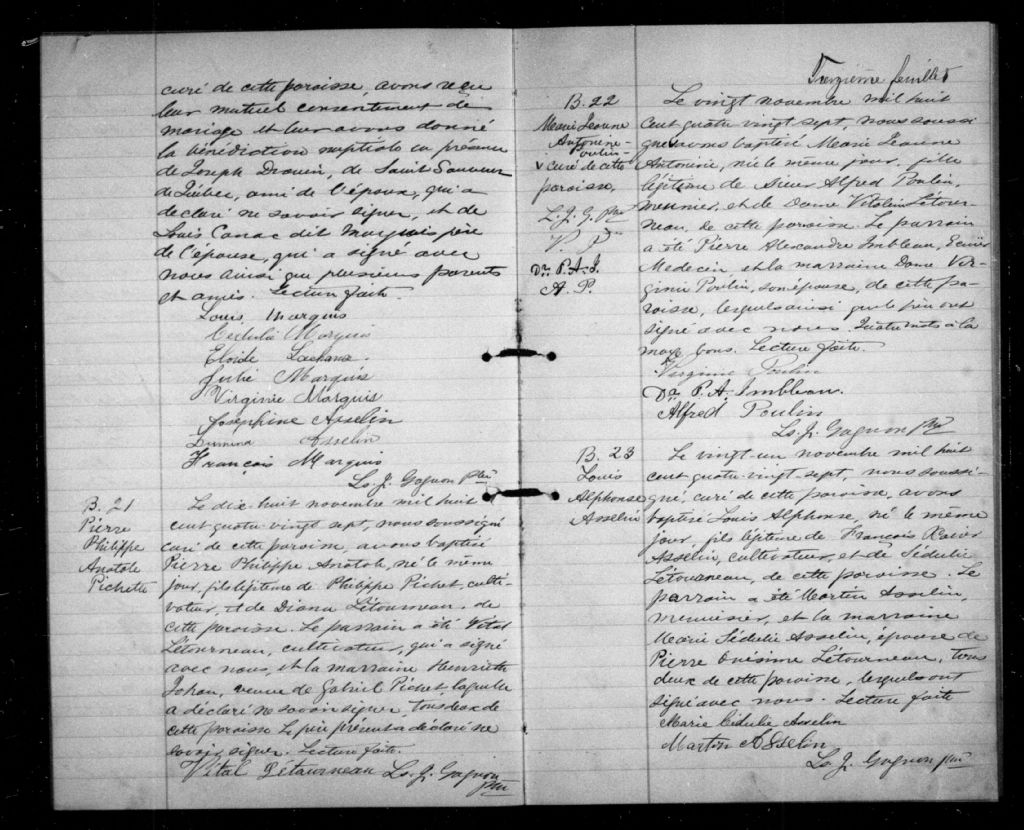 curé de cette paroisse, avons reçu
leur mutuel consentement de
mariage et leur avons donné
la bénédiction nuptiale en présence
de Joseph Drouin, de Saint Sauveur
de Québec, ami de l'époux, qui a
declaré ne savoir signer, et de
Louis Canac dit Marquis père
de l'épouse, qui a signé avec
nous ainsi que plusieurs parents
et amis. Lecture faite.
Louis Marquis
Cédulie Marquis
Eloïde Lachance
Julie Marquis
Virginie Marquis
Joséphine Asselin
Asselin
François Marquis
Ls. J. Gagnon Ptre
B. 21
Pierre
Philippe
Anatole
Pichette
Le dix huit novembre mil huit
cent quatre vingt sept, nous soussigné
curé de cette paroisse, avons baptisé
Pierre Philippe Anatole, né le même
jour, fils légitime de Philippe Pichet, culti-
vateur, et de Diana Létourneau, de
cette paroisse. Le parrain a été Vital
Létourneau, cultivateur, qui a signé
avec nous, et la marraine Henriette
Jahan, veuve de Gabriel Pichet, laquelle
a déclaré ne savoir signer, tous deux de
cette paroisse Le père présent a déclaré ne
savoir signer. Lecture faite.
Vital Létourneau Ls. J. Gagnon
Ptre
Treizième feuillet
B. 22
Marie Jeanne
Antonine
Poulin
v curé de cette
paroisse,
L. J. G. Ptre
V. P.
Dr. P. A. I.
A. P.
Le vingt novembre mil huit
cent quatre vingt sept, nous soussi
gné avons baptisé Marie Jeanne
Antonine, née le même jour, fille
légitime de Sieur Alfred Poulin,
meunier, et de Dame Vitaline Létour-
neau, de cette paroisse. Le parrain
a été Pierre Alexandre Imbleau, Ecuier
Medecin, et la marraine Dame Vir-
ginie Poulin, son épouse, de cette pa-
roisse, lesquels ainsi que le père ont
signé avec nous. Quatre mots à la
marge bons. Lecture faite.
Virginie Poulin
Dr. P. A. Imbleau.
Alfred Poulin
Ls. J. Gagnon Ptre
B. 23
Louis
Alphonse
Asselin
Le vingt un novembre mil huit
cent quatre vingt sept, nous soussi-
gné, curé de cette paroisse, avons
baptisé Louis Alphonse, né le même
jour, fils légitime de François Xavier
Asselin, cultivateur, et de Sédulie
Létourneau, de cette paroisse. Le
parrain a été Martin Asselin,
menuisier, et la marraine
Marie Sédulie Asselin, épouse de
Pierre Onésime Létourneau, tous
deux de cette paroisse, lesquels ont
signé avec nous. Lecture faite
Marie Cédulie Asselin
Martin Asselin
Ls. J. Gagnon Ptre